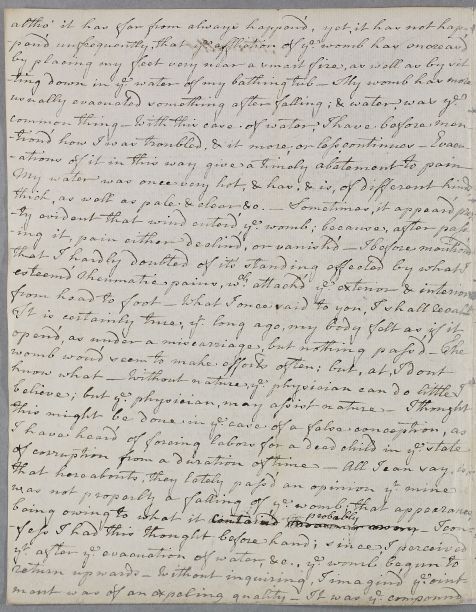 altho' it has far from always happen'd, yet it has not hap-
pen'd unfrequently, that yᵉ affliction of yᵉ womb has increas'd
by placing my feet very near a smart fire, as well as by set-
ting down in yᵉ water of my bathing tub – My womb has more
usually evacuated something after falling; & water was yᵉ
common thing – With this case of water, I have before men-
tion'd how I was troubled, & it more, or less continues – Evacu-
ations of it in this way give a kindly abatement to pain –
My water was once very hot, & has, & is, of different kind
thick, as well as pale & clear &c. – Sometimes, it appear'd
-ly evident that wind enter'd yᵉ womb; because, after pass
ing it, pain either declin'd, or vanish'd – I before mention'd
that I hardly doubted of its standing affected by what I
esteem'd rheumatic pains, wᶜ. attack'd yᵉ exterior & interior
from head to foot – What I once said to you, I shall recall
It is certainly true, yᵗ. long ago, my body felt as if it
open'd, as under a miscarriage, but nothing pass'd – The
womb wou'd seem to make efforts often; but, at, I dont
know what – Without nature, yᵉ physician can do little I
believe; but yᵉ physician, may assist nature – I thought
this might be done in yᵉ case of a false conception, as
I have heard of forcing labors for a dead child in yᵉ state
of corruption from a duration of time – All I can say, is
that hereabouts, they lately pass'd an opinion yᵗ mine
was not properly a falling of yᵉ womb, that appearance
being owing to what it contain'd probably – I con-
-fess I had this thought before hand; since, I perceived
yᵗ after yᵉ evacuation of water, &c., yᵉ womb begun to
return upwards – Without inquiring, I imagin'd yᵉ oint
ment was of an expeling quality – It was yᵉ compound